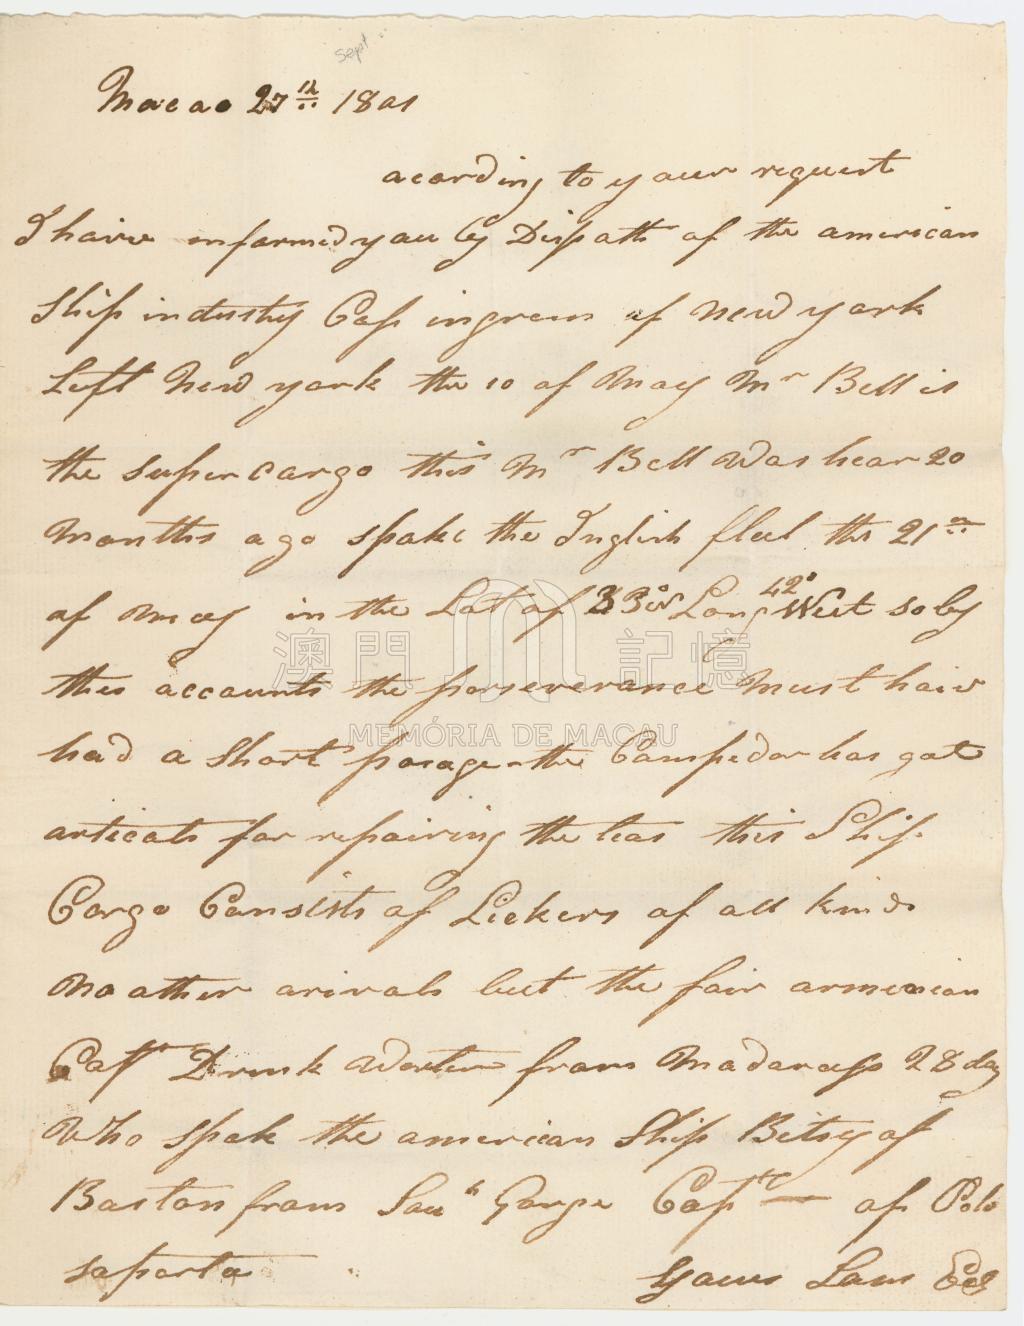 Sept
Macao 27th 1801
acording to your request
I haive informed you by Dispath of the american
Ship industry Cap ingrem of New york
Left New york the 10 of May Mr Bell is
the supercargo this Mr Bell was hear 20
Months ago spake the Inglish fleet the 21
of May in the Lat of 33 Long 42° West so by
this accounts the perseverance must haive
had a short pasage the Campidor has got
articals for repairing the leas this Ship
Cargo Consists of Lickers of all kinds
No other arivals but the fair armenian
Capt Drink from Madarass 28 day
Who spak the american Ship Bitsy of
Boston from Sou Gorge Capt — of Polo
saporta Yours Sam
澳門記憶
MEMÓRIA DE MACAU